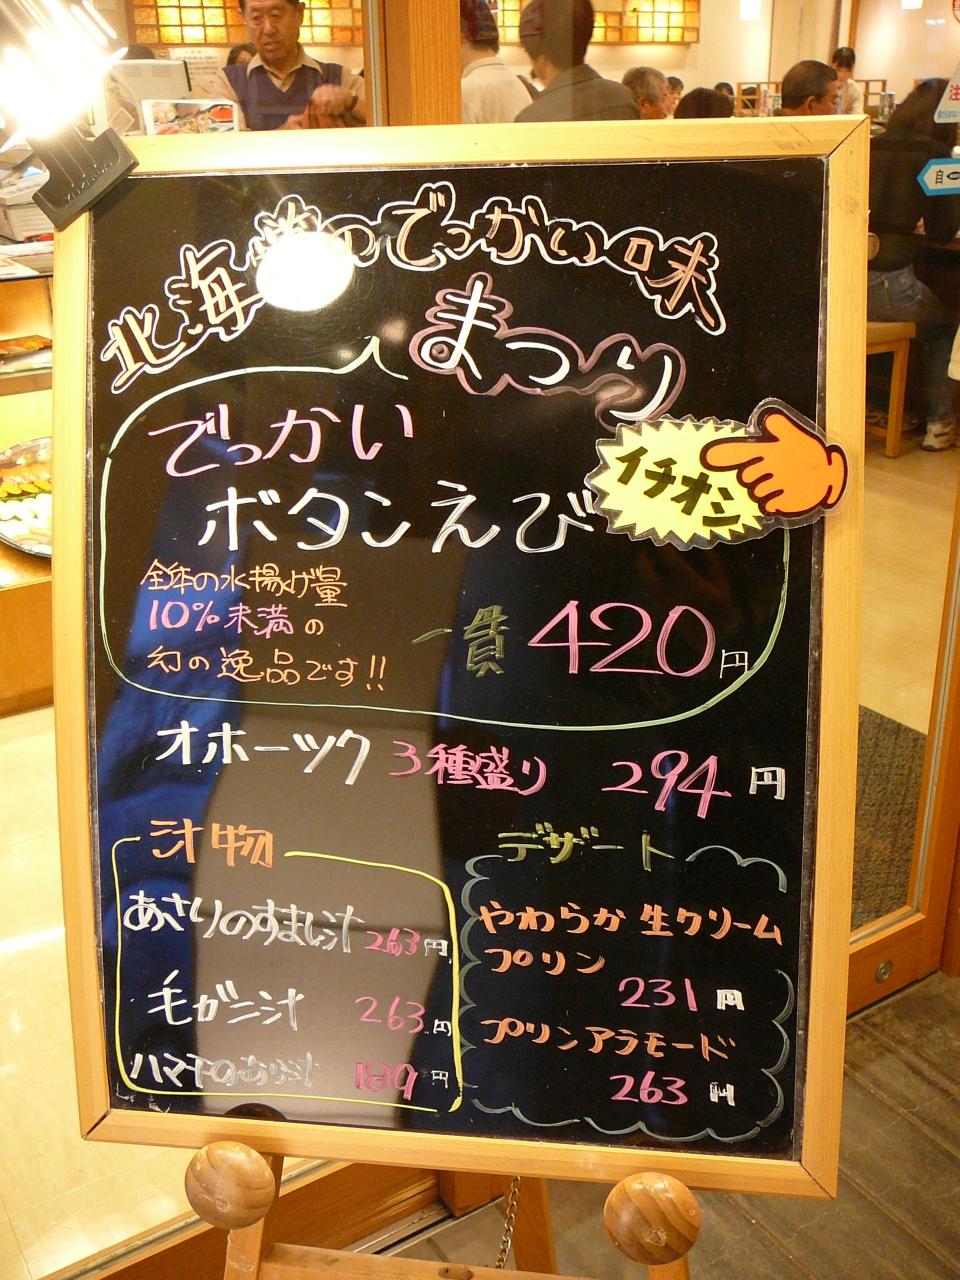 北海道のでっかい味
まつり
でっかい
ボタンえび
イチオシ
全体の水揚げ量
10%未満の
幻の逸品です!!
一貫 420円
オホーツク 3種盛り 294円
汁物
あさりのすまし汁 263円
毛ガニ汁 263円
ハマチのあら汁 189円
デザート
やわらか 生クリーム
プリン
231円
プリンアラモード
263円
注